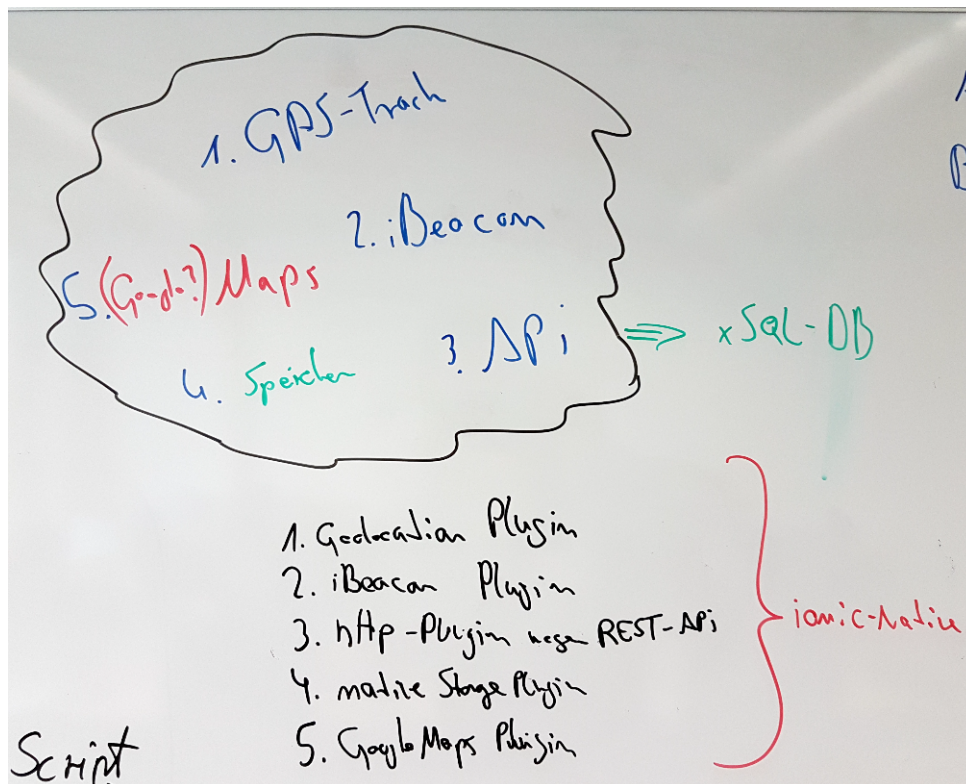 1. GPS-Track
2. iBeacon
5. (Google?) Maps
3. APi
⇒ xSQL-DB
4. Speicher
1. Geolocation Plugin
2. iBeacon Plugin
3. http-Plugin wegen REST-APi
4. native Storage Plugin
5. GoogleMaps Plugin
ionic-Native
Script